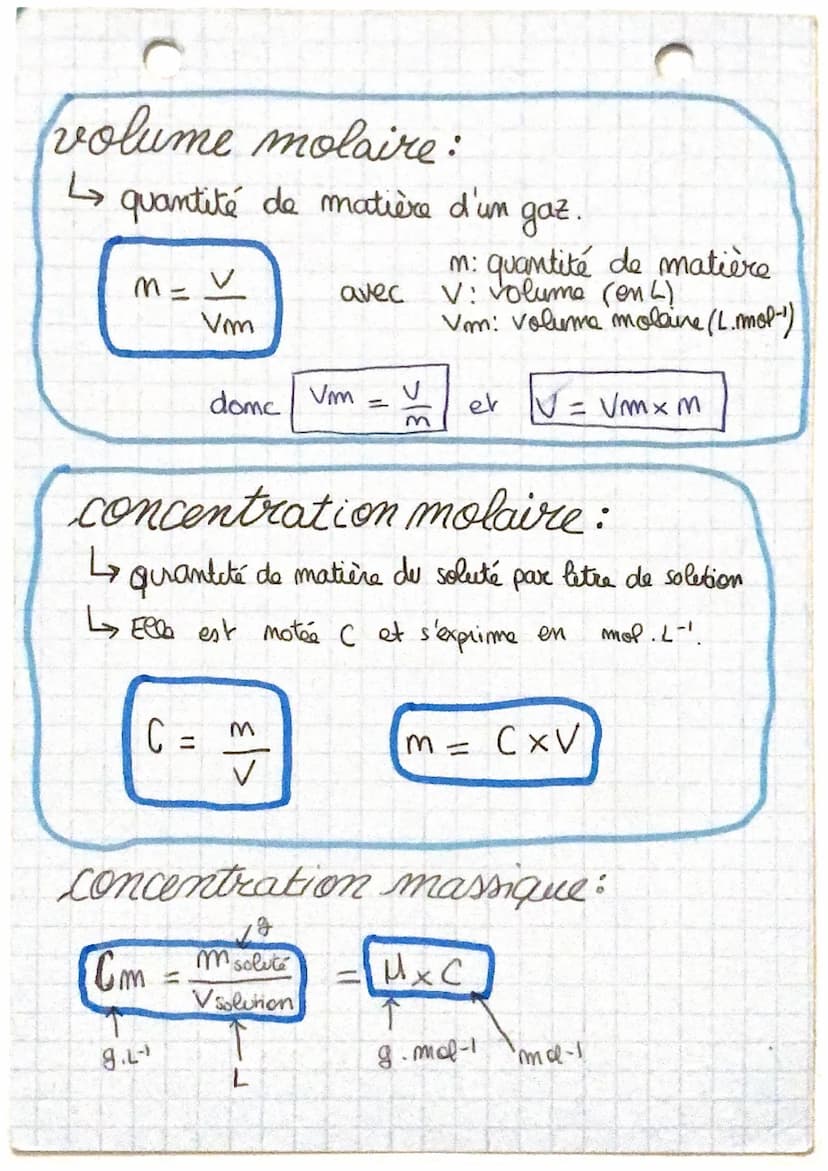 volume molaire :
↳ quantité de matière d'un gaz.
n = V / Vm
avec
n : quantité de matière
V : volume (en L)
Vm : volume molaire (L.mol⁻¹)
donc Vm = V / n et V = Vm × n
concentration molaire :
↳ quantité de matière du soluté par litre de solution
↳ Elle est notée C et s'exprime en mol.L⁻¹.
C = n / V
n = C × V
concentration massique :
g
Cm = m soluté / V solution = M × C
g.L⁻¹
L
g.mol⁻¹
mol⁻¹